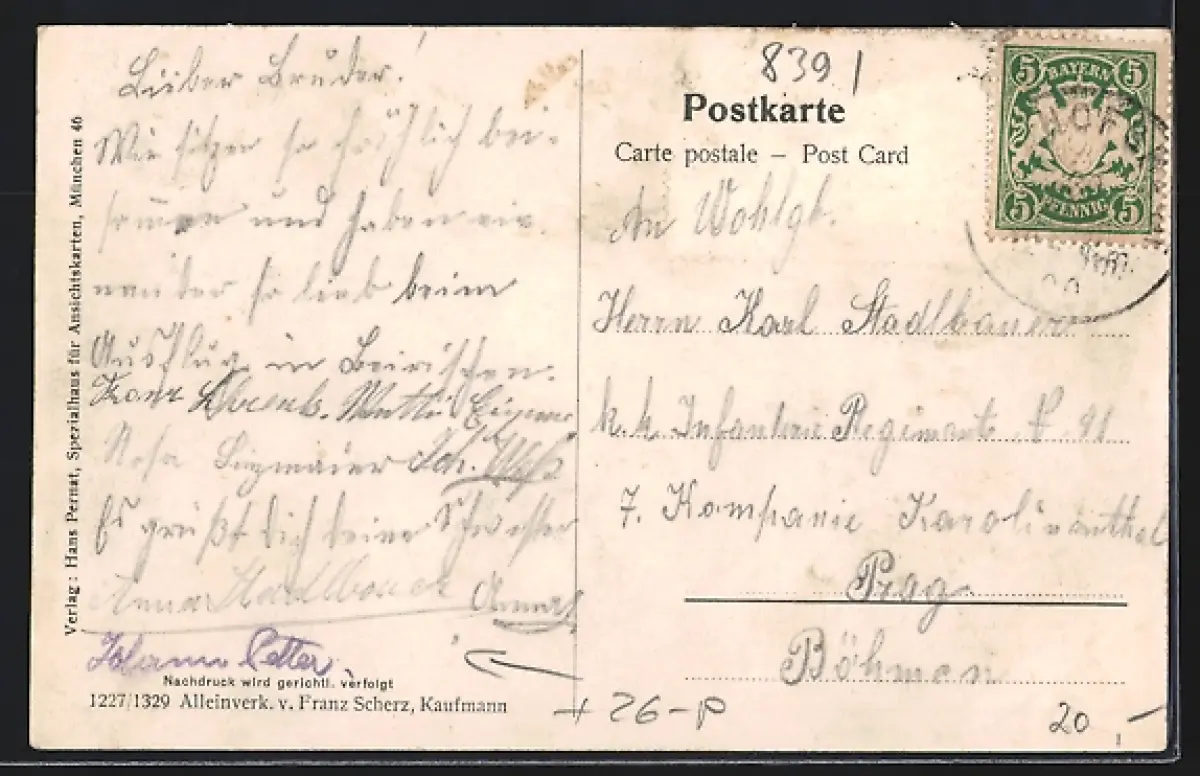 Lieber Bruder!
Wir sitzen so fröhlich bei-
samen und haben ein-
nander so lieb beim
Ausflug in Beirischen.
Franz
Rosa Joh.
Es grüßt dich deine Schwester
Anna Stadlbauer
Johann Petter
Nachdruck wird gerichtl. verfolgt
1227/1329 Alleinverk. v. Franz Scherz, Kaufmann
Verlag: Hans Pernat, Spezialhaus für Ansichtskarten, München 46
839
Postkarte
Carte postale – Post Card
5 BAYERN 5
5 PFENNIG 5
HOF
An Wohlgb.
Herrn Karl Stadlbauer
k. k. Infanterie Regimante N. 91
7. Kompanie Karolinenthal
Prag
Böhmen
+ 26-P
20,-